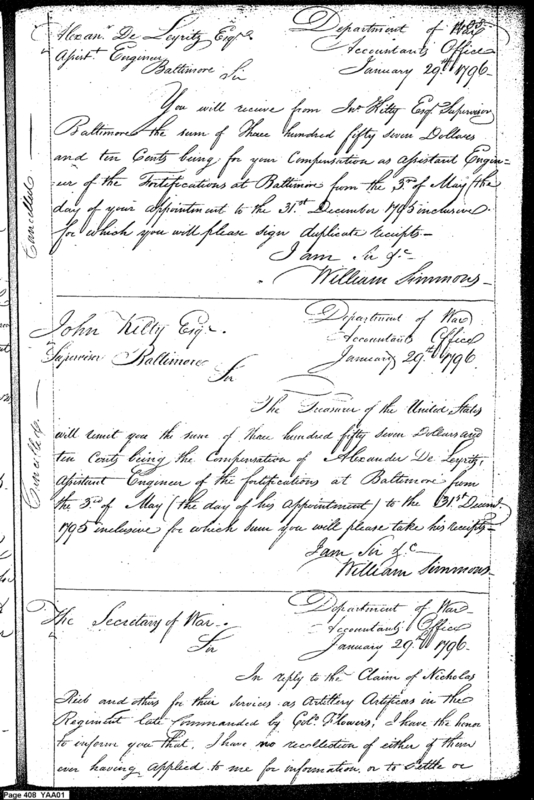 Alexanr. De Leyritz Esqr.
Assist. Engineer
Baltimore
Sir
Department of War
Accountants Office
January 29th. 1796
You will receive from Jno. Kilty Esqr. Supervisor
Baltimore the sum of Three hundred fifty seven Dollars
and ten Cents being for your Compensation as Assistant Engin=
eer of the Fortifications at Baltimore from the 3rd of May (the
day of your appointment to the 31.st December 1795 inclusive
for which you will please sign duplicate receipts—
I am Sir &c
William Simmons
Cancelled
John Kilty Esqr.
Supervisor Baltimore
Sir
Department of War
Accountants Office
January 29th. 1796.
The Treasurer of the United States
will remit you the sum of Three hundred fifty seven Dollars and
ten Cents being the Compensation of Alexander De Leyritz,
Assistant Engineer of the fortifications at Baltimore from
the 3rd of May (the day of his Appointment) to the 31st Decemr.
1795 inclusive for which sum you will please take his receipts—
I am Sir &c
William Simmons
The Secretary of War.
Sir
Department of War
Accountants Office
January 29th 1796.
In reply to the Claim of Nicholas
Rieb and others for their services as Artillery Artificers in the
Regiment late Commanded by Colo. Flowers, I have the honor
to inform you that I have no recollection of either of them
ever having applied to me for information or to settle or
Page 408 YAA01